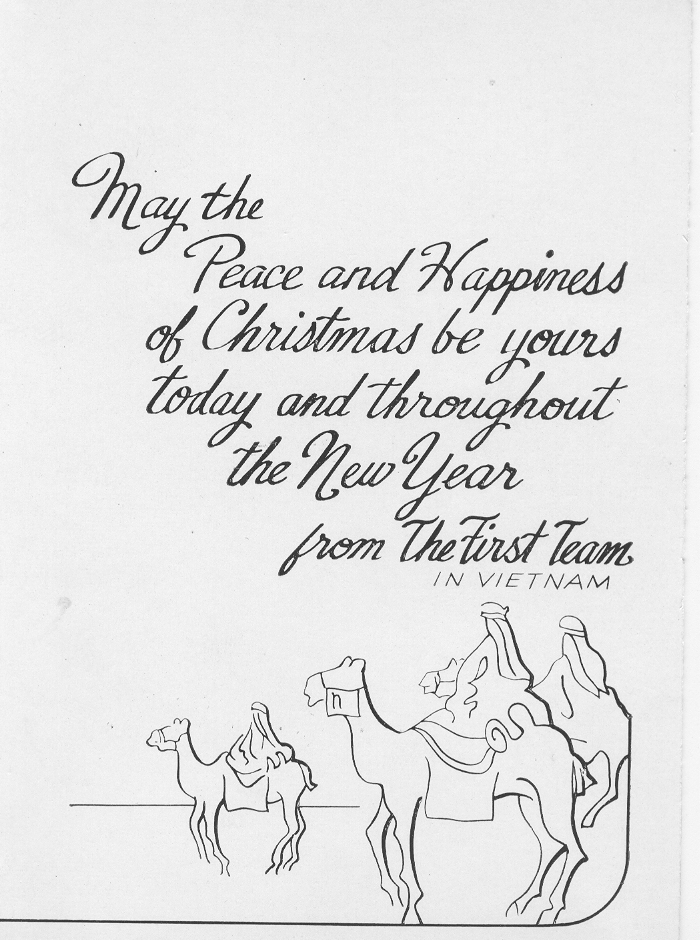 May the
Peace and Happiness
of Christmas be yours
today and throughout
the New Year
from The First Team
IN VIETNAM